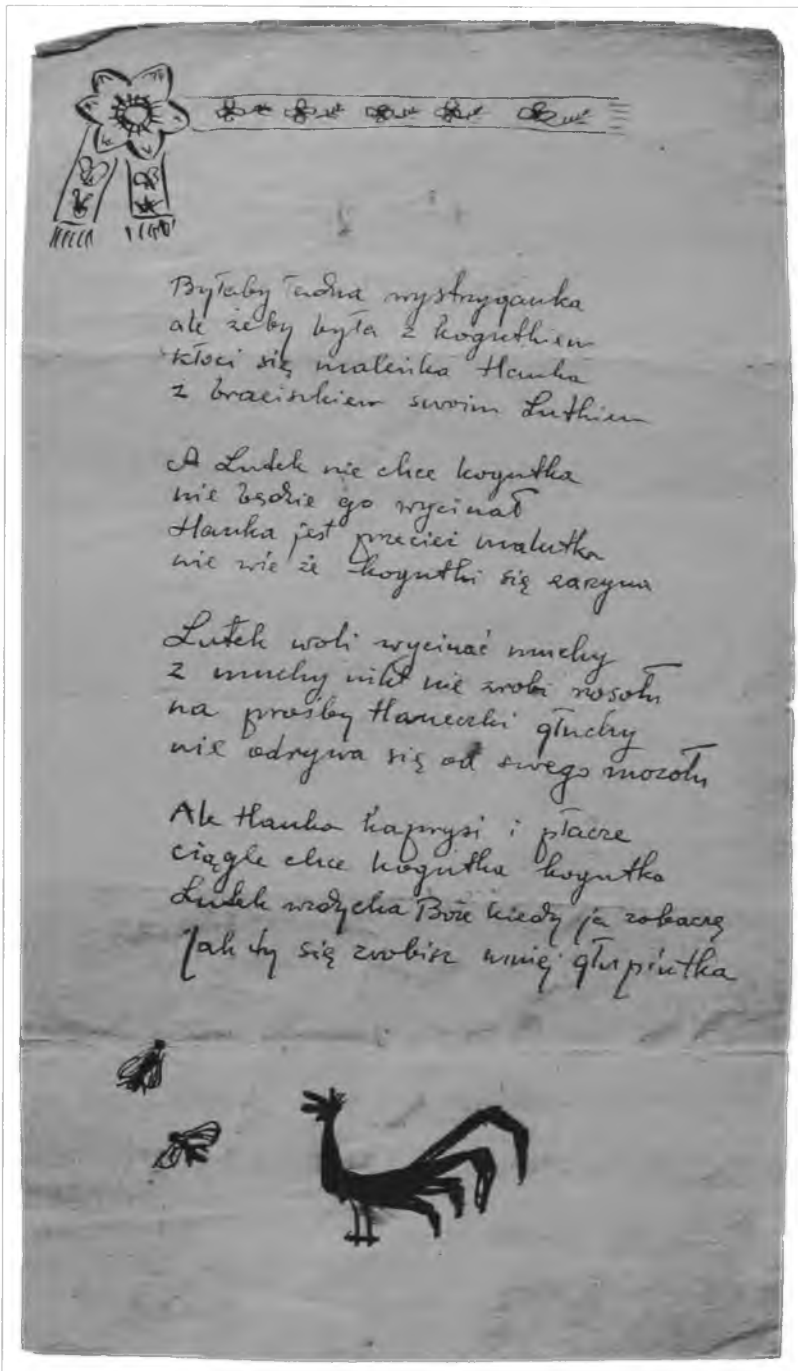 Byłaby ładna wystrzyganka
ale żeby była z kogutkiem
kłóci się maleńka Hanka
z braciszkiem swoim Lutkiem
A Lutek nie chce kogutka
nie będzie go wycinał
Hanka jest przecież malutka
nie wie że kogutki się zarzyna
Lutek woli wycinać muchy
z muchy nikt nie zrobi rosołu
na prośby Haneczki głuchy
nie odrywa się od swego mozołu
Ale Hanka kaprysi i płacze
ciągle chce kogutka kogutka
Lutek wzdycha Boże kiedy ja zobaczę
Jak ty się zrobisz mniej głupiutka